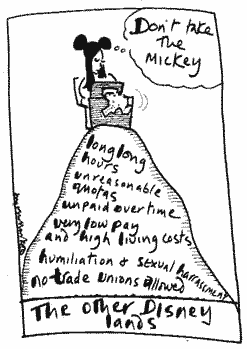 Don't take
The
MICKEY
long long
hours
unreasonable
quotas
unpaid overtime
very low pay
and high living costs
humiliation & sexual harrassment
no trade unions allowed
The other Disney
lands